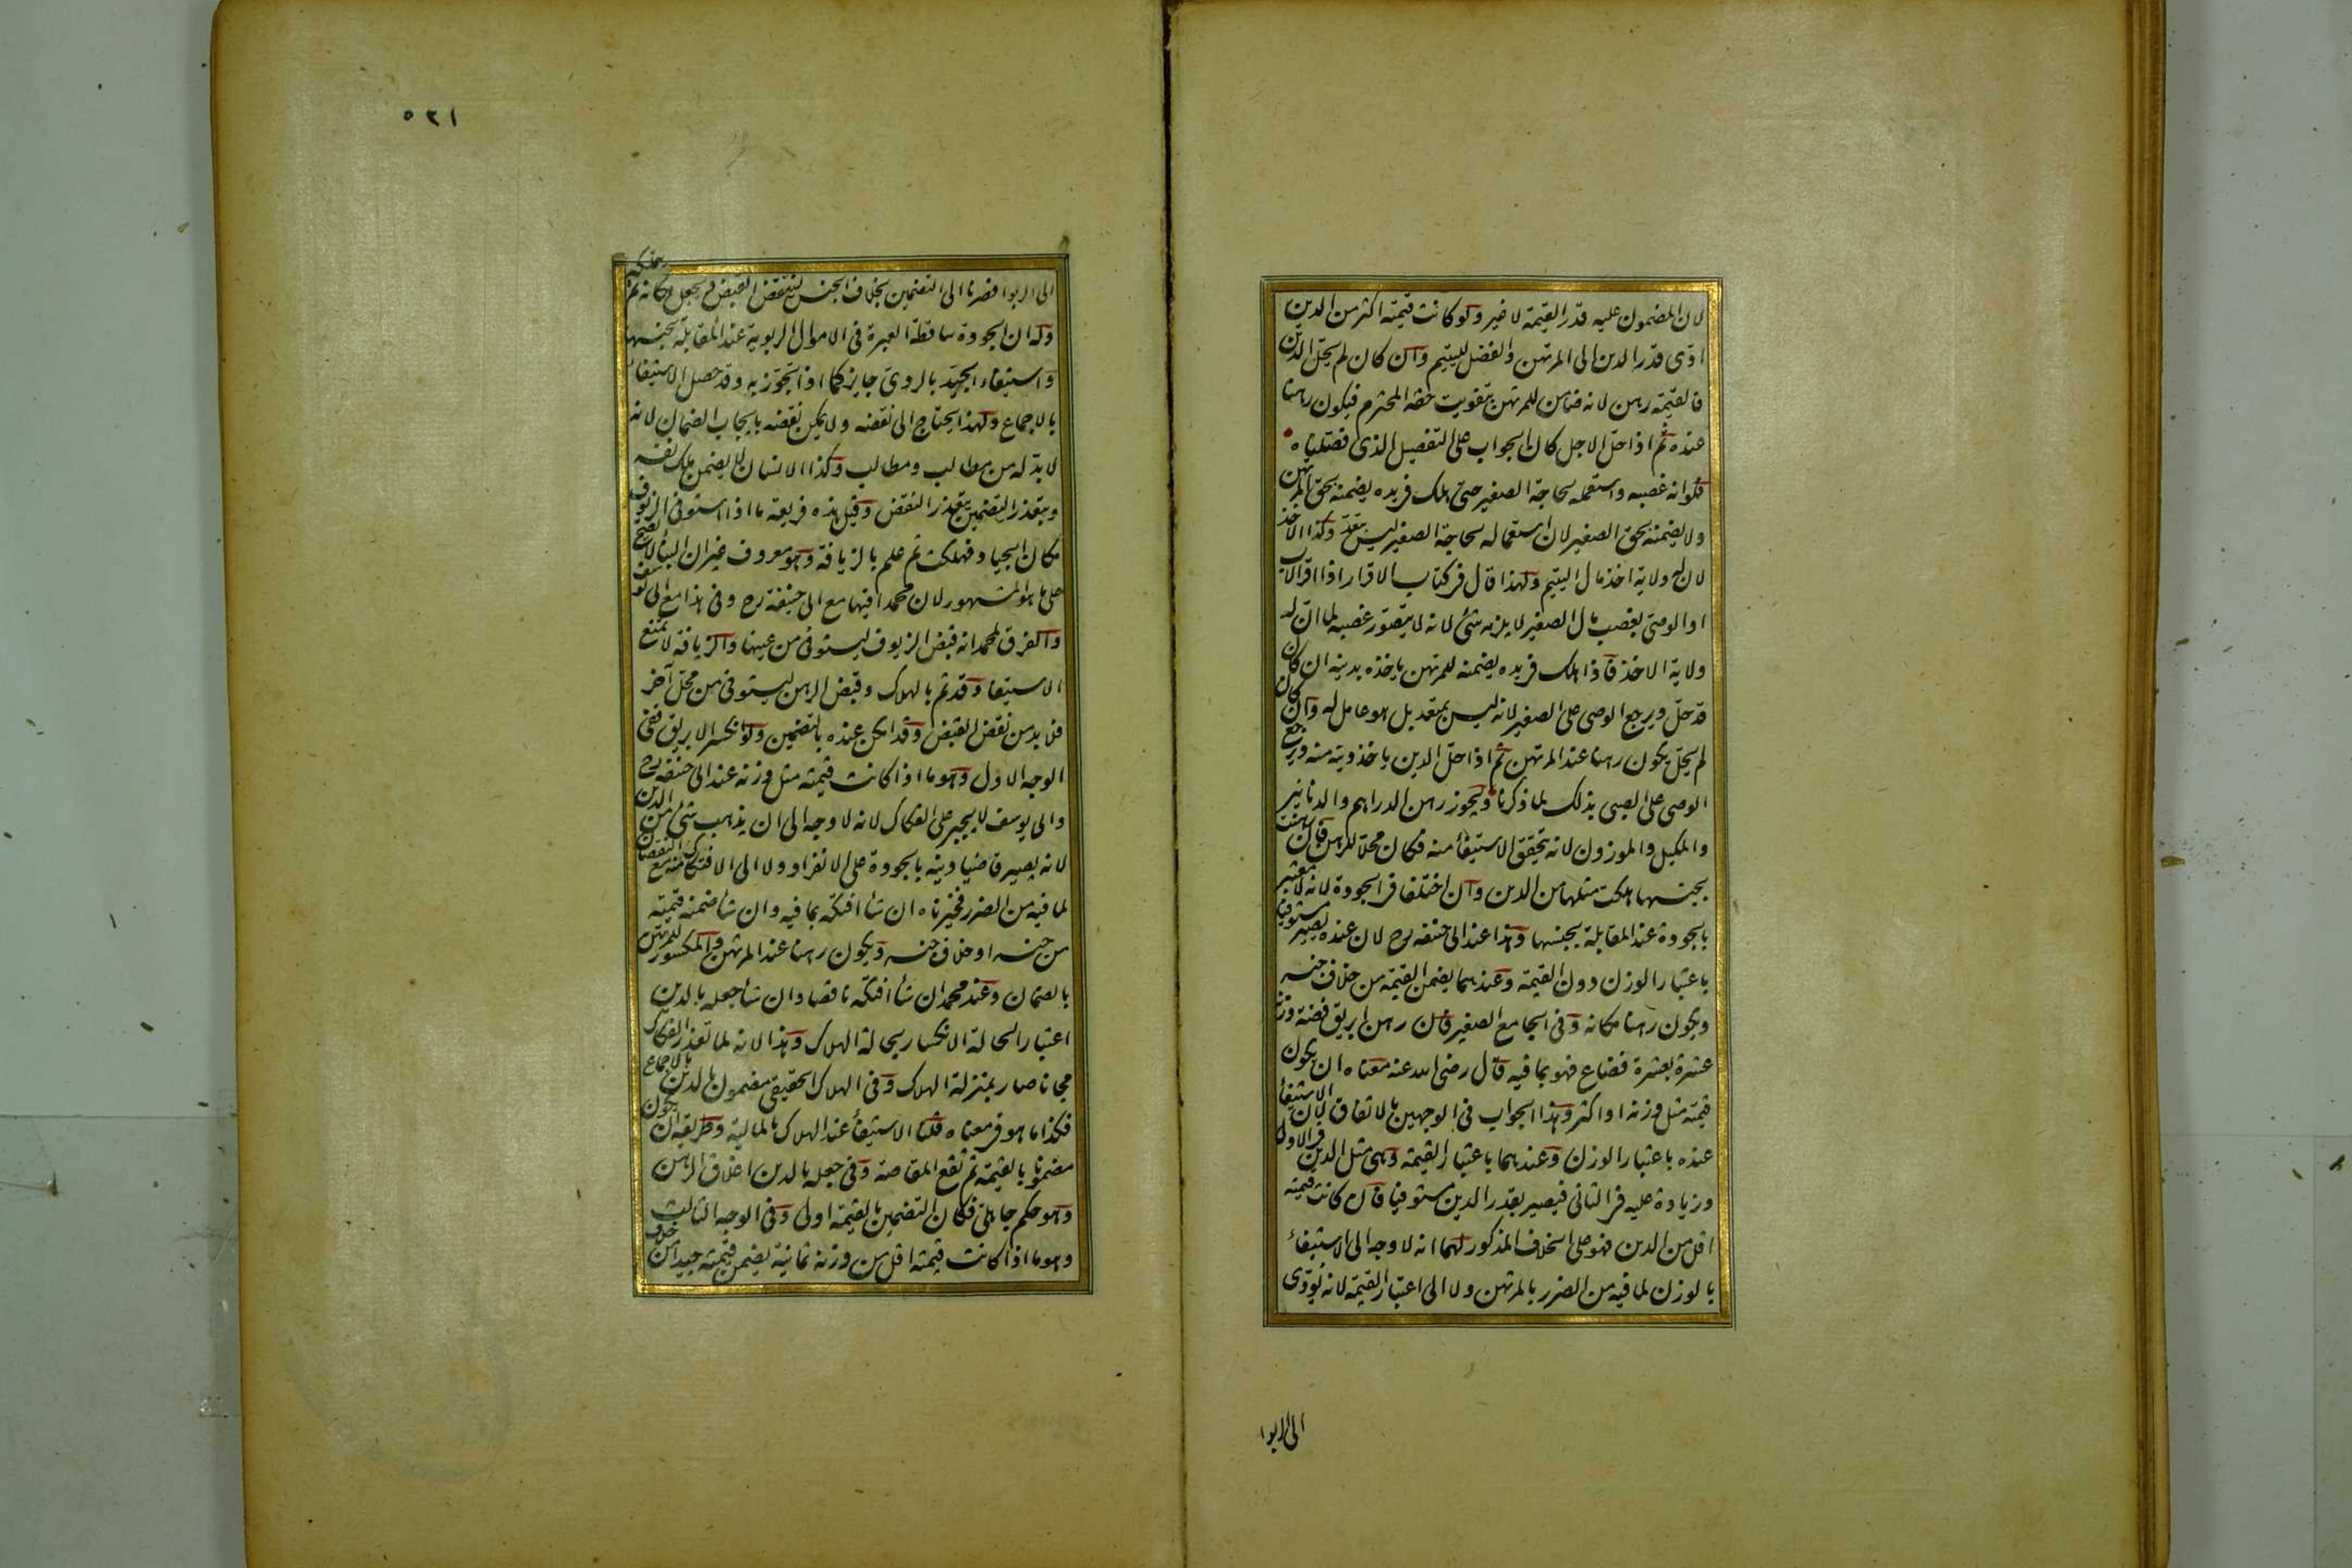 لان المضمون عليه قدر القيمة لا غير ولو كانت قيمته اكثر من الدين
ادى قدر الدين الى المرتهن والفضل لليتيم وان كان لم يحل الدين
فالقيمة رهن لانه ضامن للمرتهن بتفويت حقه المحترم فيكون رهنا
عنده ثم اذا حل الاجل كان الجواب على التفصيل الذى فصلناه
فلو انه غصبه واستعمله لحاجة الصغير حتى هلك فى يده يضمنه بحق المرتهن
ولا يضمنه بحق الصغير لان استعماله لحاجة الصغير ليس بتعد وكذا الاخذ
لان له ولاية اخذ مال اليتيم ولهذا قال فى كتاب الاقرار اذا اقر الاب
او الوصى بغصب مال الصغير لا يلزمه شئ لانه لا يتصور غصبه لما ان له
ولاية الاخذ فاذا هلك فى يده يضمنه للمرتهن ياخذه بدينه ان كان
قد حل ويرجع الوصى على الصغير لانه ليس بمتعد بل هو عامل له وان كان
لم يحل يكون رهنا عند المرتهن ثم اذا حل الدين ياخذ دينه منه ويرجع
الوصى على الصبى بذلك لما ذكرنا ويجوز رهن الدراهم والدنانير
والمكيل والموزون لانه يتحقق الاستيفاء منه فكان محلا للرهن فان رهنت
بجنسها هلكت مثلها من الدين وان اختلفا فى الجودة لانه لا معتبر
بالجودة عند المقابلة بجنسها وهذا عند ابى حنيفه رح لان عنده يصير مستوفيا
باعتبار الوزن دون القيمة وعندهما يضمن القيمة من خلاف جنسه
ويكون رهنا مكانه وفى الجامع الصغير فان رهن ابريق فضة وزنه
عشرة بعشرة فضاع فهو بما فيه قال رضى الله عنه معناه ان يكون
قيمته مثل وزنه او اكثر وهذا الجواب فى الوجهين بالاتفاق لان الاستيفاء
عنده باعتبار الوزن وعندهما باعتبار القيمة وهى مثل الدين فى الاول
وزيادة عليه فى الثانى فيصير بقدر الدين مستوفيا فان كانت قيمته
اقل من الدين فهو على الخلاف المذكور لهما انه لا وجه الى الاستيفاء
بالوزن لما فيه من الضرر بالمرتهن ولا الى اعتبار القيمة لانه يؤدى
الى الربوا
٥٢١
الى الربوا فصرنا الى التضمين بخلاف الجنس لينتقض القبض ويجعل مكانه ثم يتملكه
وله ان الجودة ساقطة العبرة فى الاموال الربوية عند المقابلة بجنسها
واستيفاء الجيد بالردى جايز كما اذا تجوز به وقد حصل الاستيفاء
بالاجماع ولهذا يحتاج الى نقضه ولا يمكن نقضه بايجاب الضمان لانه
لا بد له من مطالب ومطالب وكذا الانسان لا يضمن ملك نفسه
وبتعذر التضمين يتعذر النقض وقيل هذه فريعة ما اذا استوفى الزيوف
مكان الجياد فهلكت ثم علم بالزيافة وهو معروف غير ان البناء لا يصح
على ما هو المشهور لان محمدا فيها مع ابى حنيفة رح وفى هذا مع ابى يوسف
والفرق لمحمد انه قبض الزيوف ليستوفى من عينها والزيافة لا تمنع
الاستيفاء وقد تم بالهلاك وقبض الرهن ليستوفى من محل آخر
فلا بد من نقض القبض وقد امكن عنده بالتضمين ولو انكسر الابريق ففى
الوجه الاول وهو ما اذا كانت قيمته مثل وزنه عند ابى حنيفه رح
وابى يوسف لا يجبر على الفكاك لانه لا وجه الى ان يذهب شئ من الدين
لانه يصير قاضيا دينه بالجودة على الانفراد ولا الى الافتكاك مع النقصان
لما فيه من الضرر فخيرناه ان شاء افتكه بما فيه وان شاء ضمنه قيمته
من جنسه او خلاف جنسه ويكون رهنا عند المرتهن والمكسور للمرتهن
بالضمان وعند محمد ان شاء افتكه ناقصا وان شاء جعله بالدين
اعتبارا لحالة الانكسار بحالة الهلاك وهذا لانه لما تعذر الفكاك
مجانا صار بمنزلة الهلاك وفى الهلاك الحقيقى مضمون بالدين بالاجماع
فكذا ما هو فى معناه قلنا الاستيفاء عند الهلاك بالمالية وطريقه ان يكون
مضمونا بالقيمة ثم تقع المقاصة وفى جعله بالدين اغلاق الرهن
وهو حكم جاهلى فكان التضمين بالقيمة اولى وفى الوجه الثالث
وهو ما اذا كانت قيمته اقل من وزنه ثمانية يضمن قيمته جيدا من خلاف